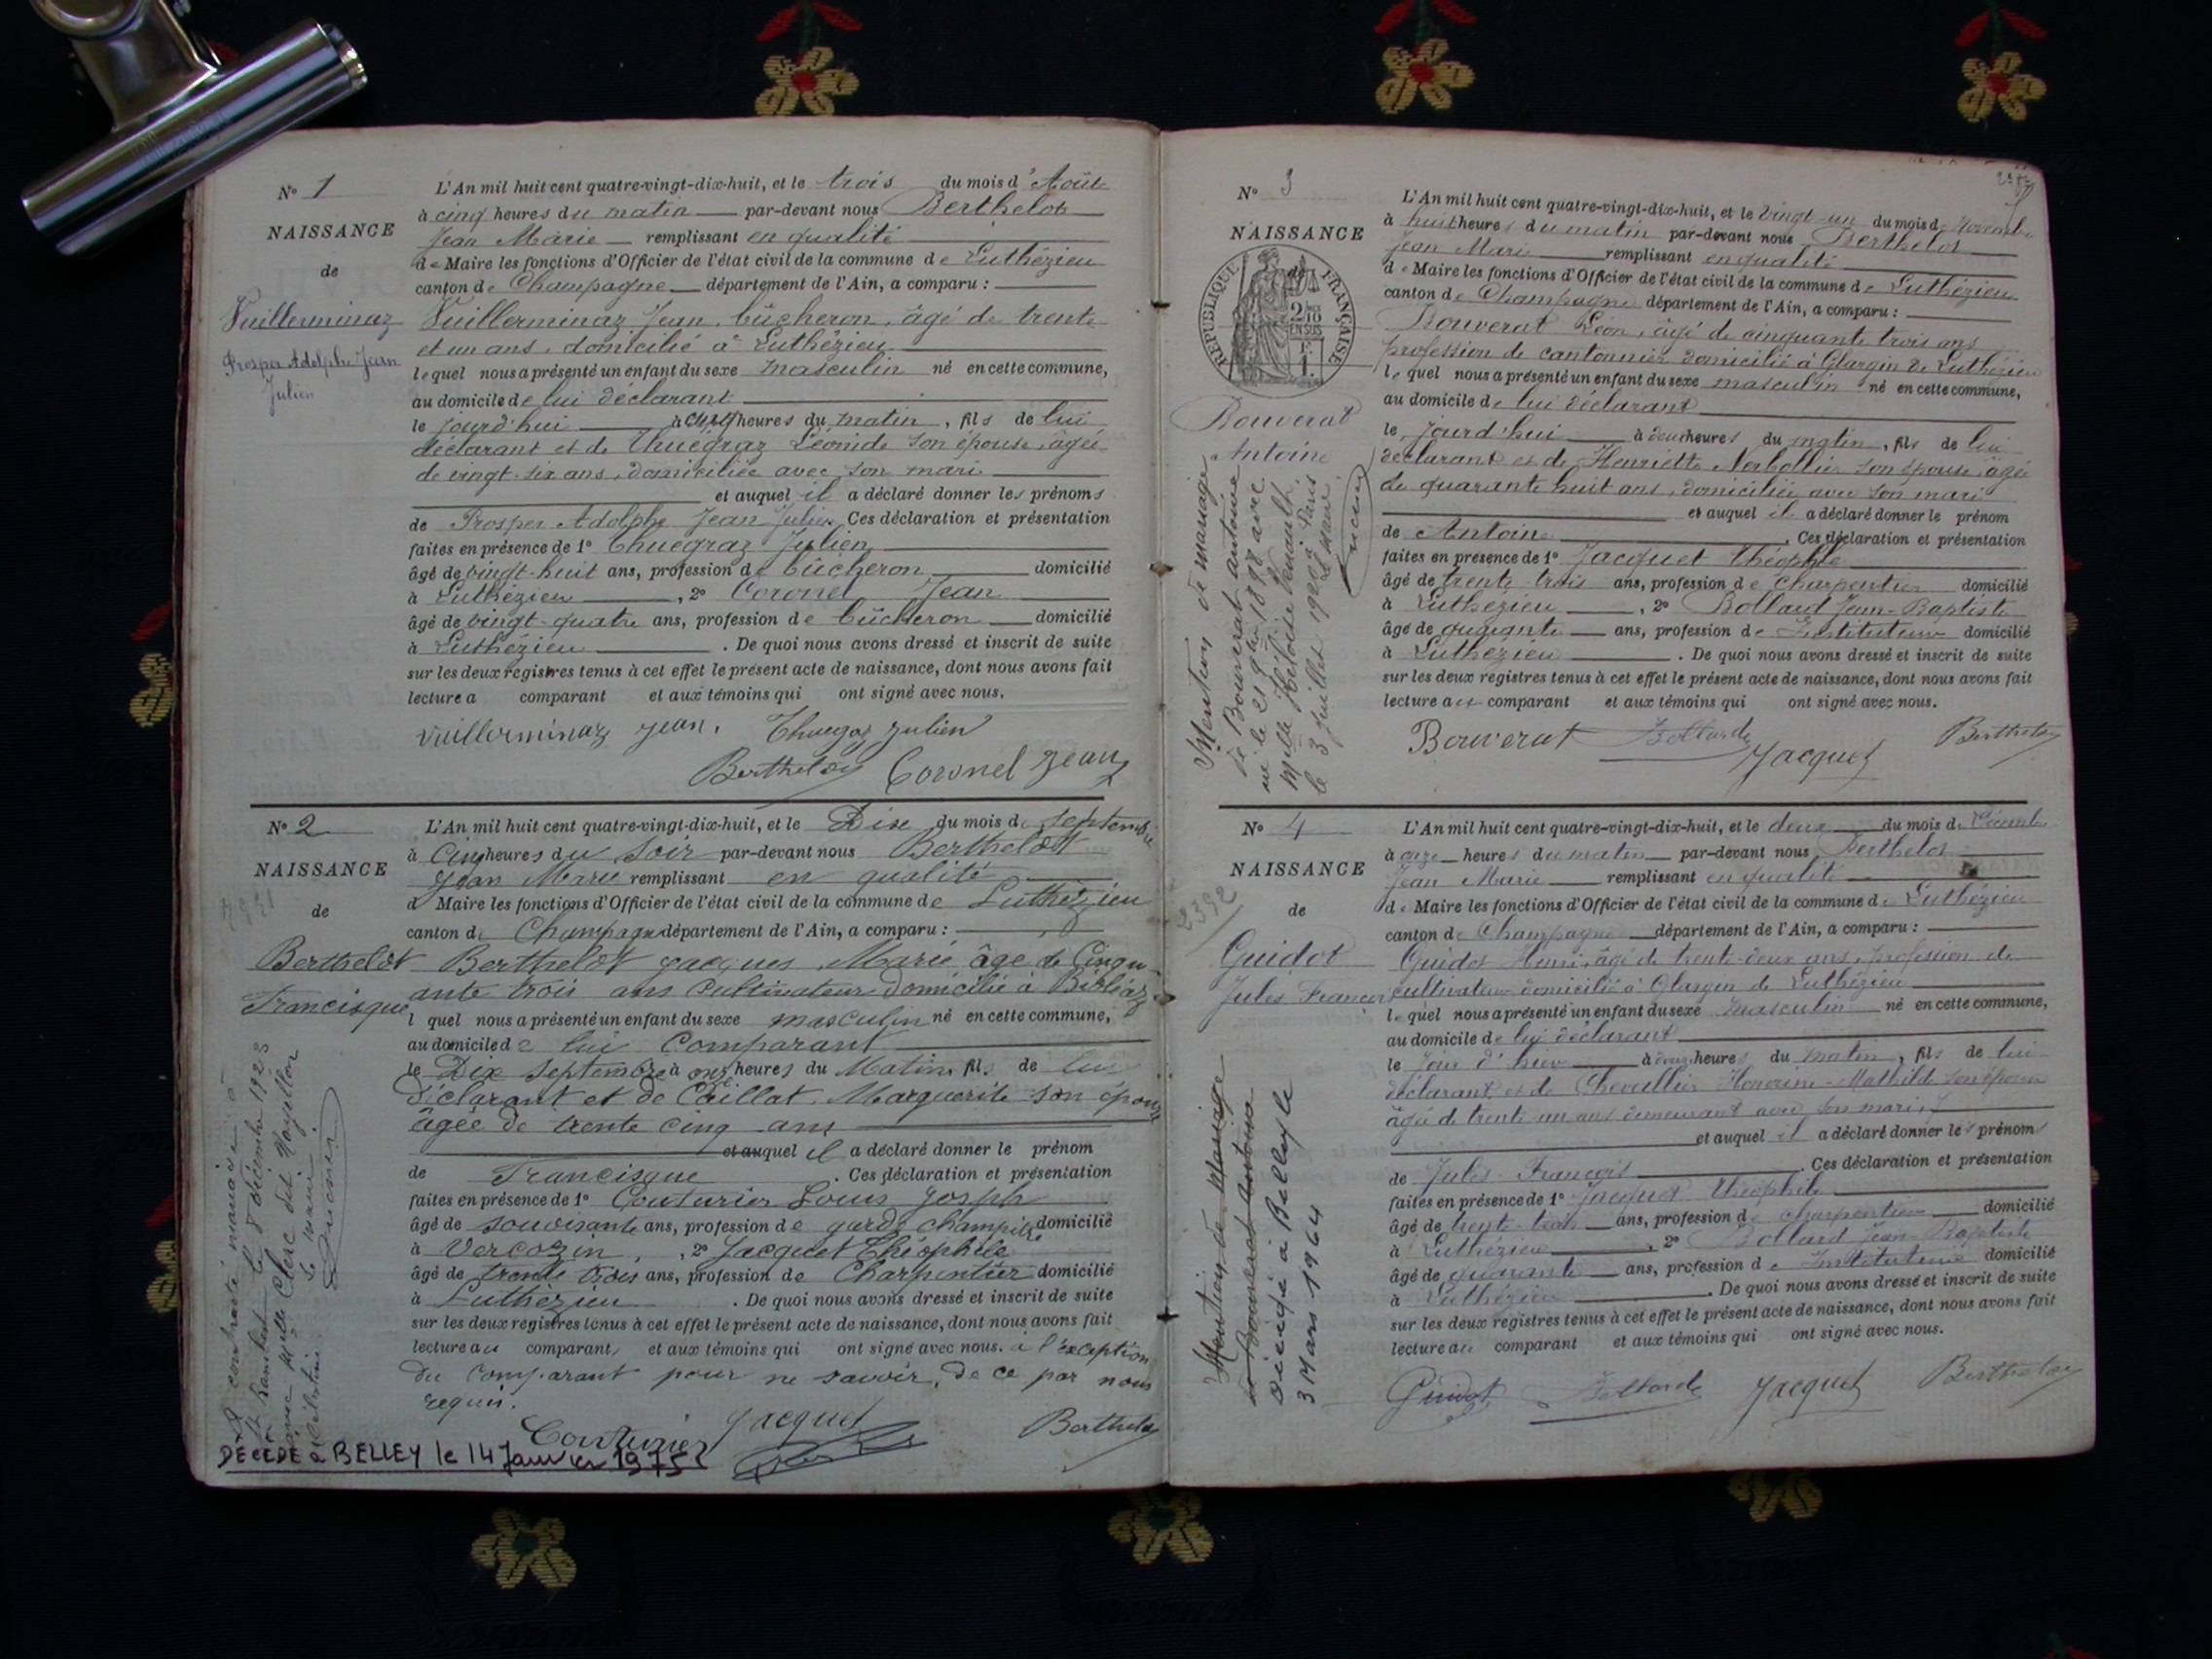 N° 1
NAISSANCE
de
Vuillerminaz
Prosper Adolphe Jean
Julien
L'An mil huit cent quatre-vingt-dix-huit, et le trois du mois d'Août
à cinq heures du matin par-devant nous Berthelot
Jean Marie remplissant en qualité
de Maire les fonctions d'Officier de l'état civil de la commune de Luthézieu
canton de Champagne département de l'Ain, a comparu :
Vuillerminaz Jean, bûcheron, âgé de trente
et un ans, domicilié à Luthézieu
lequel nous a présenté un enfant du sexe masculin né en cette commune,
au domicile de lui déclarant
le jourd'hui à heures du matin, fils de lui
déclarant et de Thuégraz Léonide son épouse, âgée
de vingt-six ans, domiciliée avec son mari
et auquel il a déclaré donner les prénoms
de Prosper Adolphe Jean Julien Ces déclaration et présentation
faites en présence de 1° Thuegraz Julien
âgé de vingt-huit ans, profession de bûcheron domicilié
à Luthézieu, 2° Coronel Jean
âgé de vingt-quatre ans, profession de bûcheron domicilié
à Luthézieu. De quoi nous avons dressé et inscrit de suite
sur les deux registres tenus à cet effet le présent acte de naissance, dont nous avons fait
lecture a comparant et aux témoins qui ont signé avec nous.
Vuillerminaz Jean. Thuegaz Julien
Berthelot Coronel Jean
N° 2
NAISSANCE
de
Berthelot
Francisque
L'An mil huit cent quatre-vingt-dix-huit, et le Dix du mois de Septembre
à Cinq heures du Soir par-devant nous Berthelot
Jean Marie remplissant en qualité
d Maire les fonctions d'Officier de l'état civil de la commune de Luthézieu
canton de Champagne département de l'Ain, a comparu :
Berthelot Jacques Marie âgé de Cinqu-
ante trois ans Cultivateur domicilié à
l quel nous a présenté un enfant du sexe masculin né en cette commune,
au domicile de lui Comparant
le Dix Septembre à onze heures du Matin, fils de lui
déclarant et de Caillat Marguerite son épouse
âgée de trente cinq ans
et auquel il a déclaré donner le prénom
de Francisque. Ces déclaration et présentation
faites en présence de 1° Couturier Louis Joseph
âgé de souvisante ans, profession de garde champêtre domicilié
à Vercozin, 2° Jacquet Théophile
âgé de trente trois ans, profession de Charpentier domicilié
à Luthézieu. De quoi nous avons dressé et inscrit de suite
sur les deux registres tenus à cet effet le présent acte de naissance, dont nous avons fait
lecture au comparant, et aux témoins qui ont signé avec nous. à l'exception
du comparant pour ne savoir, de ce par nous
requis.
Couturier Jacquet Berthelot
A contracté mariage à
St Rambert le 8 décembre 1923
avec Melle Clerc dit
Célestine. Le maire
DÉCÉDÉ à BELLEY le 14 Janvier 1975
N° 3
NAISSANCE
de
RÉPUBLIQUE FRANÇAISE
2/10 EN SUS
Bouverat
Antoine
Mention de mariage
de Bouverat antoine
né le 21 9bre 1898 avec
Melle Héloïse
le 3 juillet 1920 à Paris
Le Maire
L'An mil huit cent quatre-vingt-dix-huit, et le vingt-un du mois de Novembre
à huit heures du matin par-devant nous Berthelot
Jean Marie remplissant en qualité
de Maire les fonctions d'Officier de l'état civil de la commune de Luthézieu
canton de Champagne département de l'Ain, a comparu :
Bouverat Léon, âgé de cinquante trois ans
profession de cantonnier domicilié à Glargin de Luthézieu
lequel nous a présenté un enfant du sexe masculin né en cette commune,
au domicile de lui déclarant
le jourd'hui à deux heures du matin, fils de lui
déclarant et de Henriette Norbollier son épouse, âgée
de quarante huit ans, domiciliée avec son mari
et auquel il a déclaré donner le prénom
de Antoine. Ces déclaration et présentation
faites en présence de 1° Jacquet Théophile
âgé de trente-trois ans, profession de charpentier domicilié
à Luthézieu, 2° Bollard Jean-Baptiste
âgé de quarante ans, profession de Instituteur domicilié
à Luthézieu. De quoi nous avons dressé et inscrit de suite
sur les deux registres tenus à cet effet le présent acte de naissance, dont nous avons fait
lecture au comparant et aux témoins qui ont signé avec nous.
Bouverat Bollard Jacquet Berthelot
N° 4
NAISSANCE
2392
de
Guidot
Jules François
Mention de Mariage
de Bouverat Antoine
Décédé à Belley le
3 Mars 1964
L'An mil huit cent quatre-vingt-dix-huit, et le deux du mois de Décembre
à onze heures du matin par-devant nous Berthelot
Jean Marie remplissant en qualité
de Maire les fonctions d'Officier de l'état civil de la commune de Luthézieu
canton de Champagne département de l'Ain, a comparu :
Guidot Henri, âgé de trente-deux ans, profession de
cultivateur domicilié à Glargin de Luthézieu
lequel nous a présenté un enfant du sexe masculin né en cette commune,
au domicile de lui déclarant
le jour d'hier à heures du matin, fils de lui
déclarant et de Chevallier Honorine-Mathilde son épouse
âgée de trente un ans demeurant avec son mari
et auquel il a déclaré donner les prénoms
de Jules-François. Ces déclaration et présentation
faites en présence de 1° Jacquet Théophile
âgé de trente-trois ans, profession de charpentier domicilié
à Luthézieu, 2° Bollard Jean-Baptiste
âgé de quarante ans, profession de Instituteur domicilié
à Luthézieu. De quoi nous avons dressé et inscrit de suite
sur les deux registres tenus à cet effet le présent acte de naissance, dont nous avons fait
lecture au comparant et aux témoins qui ont signé avec nous.
Guidot Bollard Jacquet Berthelot